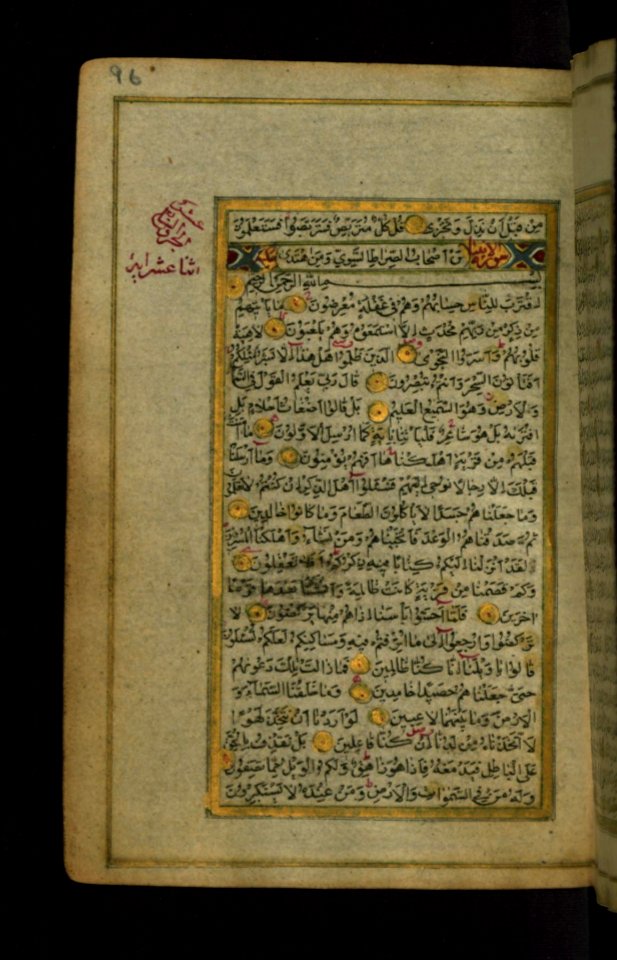 96
مِن قَبْلِ أَنْ نَذِلَّ وَنَخْزٰى قُلْ كُلٌّ مُتَرَبِّصٌ فَتَرَبَّصُوا فَسَتَعْلَمُونَ
مَنْ أَصْحَابُ الصِّرَاطِ السَّوِيِّ وَمَنِ اهْتَدٰى
اثنا عشر اية
بسم الله الرحمن الرحيم
اقْتَرَبَ لِلنَّاسِ حِسَابُهُمْ وَهُمْ فِي غَفْلَةٍ مُعْرِضُونَ مَا يَأْتِيهِمْ
مِنْ ذِكْرٍ مِنْ رَبِّهِمْ مُحْدَثٍ إِلَّا اسْتَمَعُوهُ وَهُمْ يَلْعَبُونَ لَاهِيَةً
قُلُوبُهُمْ وَأَسَرُّوا النَّجْوَى الَّذِينَ ظَلَمُوا هَلْ هٰذَا إِلَّا بَشَرٌ مِثْلُكُمْ
أَفَتَأْتُونَ السِّحْرَ وَأَنْتُمْ تُبْصِرُونَ قَالَ رَبِّي يَعْلَمُ الْقَوْلَ فِي السَّمَاءِ
وَالْأَرْضِ وَهُوَ السَّمِيعُ الْعَلِيمُ بَلْ قَالُوا أَضْغَاثُ أَحْلَامٍ بَلِ
افْتَرَاهُ بَلْ هُوَ شَاعِرٌ فَلْيَأْتِنَا بِآيَةٍ كَمَا أُرْسِلَ الْأَوَّلُونَ مَا آمَنَتْ
قَبْلَهُمْ مِنْ قَرْيَةٍ أَهْلَكْنَاهَا أَفَهُمْ يُؤْمِنُونَ وَمَا أَرْسَلْنَا
قَبْلَكَ إِلَّا رِجَالًا نُوحِي إِلَيْهِمْ فَسْئَلُوا أَهْلَ الذِّكْرِ إِنْ كُنْتُمْ لَا تَعْلَمُونَ
وَمَا جَعَلْنَاهُمْ جَسَدًا لَا يَأْكُلُونَ الطَّعَامَ وَمَا كَانُوا خَالِدِينَ
ثُمَّ صَدَقْنَاهُمُ الْوَعْدَ فَأَنْجَيْنَاهُمْ وَمَنْ نَشَاءُ وَأَهْلَكْنَا الْمُسْرِفِينَ
لَقَدْ أَنْزَلْنَا إِلَيْكُمْ كِتَابًا فِيهِ ذِكْرُكُمْ أَفَلَا تَعْقِلُونَ
وَكَمْ قَصَمْنَا مِنْ قَرْيَةٍ كَانَتْ ظَالِمَةً وَأَنْشَأْنَا بَعْدَهَا قَوْمًا
آخَرِينَ فَلَمَّا أَحَسُّوا بَأْسَنَا إِذَا هُمْ مِنْهَا يَرْكُضُونَ لَا
تَرْكُضُوا وَارْجِعُوا إِلَى مَا أُتْرِفْتُمْ فِيهِ وَمَسَاكِنِكُمْ لَعَلَّكُمْ تُسْئَلُونَ
قَالُوا يَا وَيْلَنَا إِنَّا كُنَّا ظَالِمِينَ فَمَا زَالَتْ تِلْكَ دَعْوَاهُمْ
حَتَّى جَعَلْنَاهُمْ حَصِيدًا خَامِدِينَ وَمَا خَلَقْنَا السَّمَاءَ وَ
الْأَرْضَ وَمَا بَيْنَهُمَا لَاعِبِينَ لَوْ أَرَدْنَا أَنْ نَتَّخِذَ لَهْوًا
لَاتَّخَذْنَاهُ مِنْ لَدُنَّا إِنْ كُنَّا فَاعِلِينَ بَلْ نَقْذِفُ بِالْحَقِّ
عَلَى الْبَاطِلِ فَيَدْمَغُهُ فَإِذَا هُوَ زَاهِقٌ وَلَكُمُ الْوَيْلُ مِمَّا تَصِفُونَ
وَلَهُ مَنْ فِي السَّمٰوَاتِ وَالْأَرْضِ وَمَنْ عِنْدَهُ لَا يَسْتَكْبِرُونَ